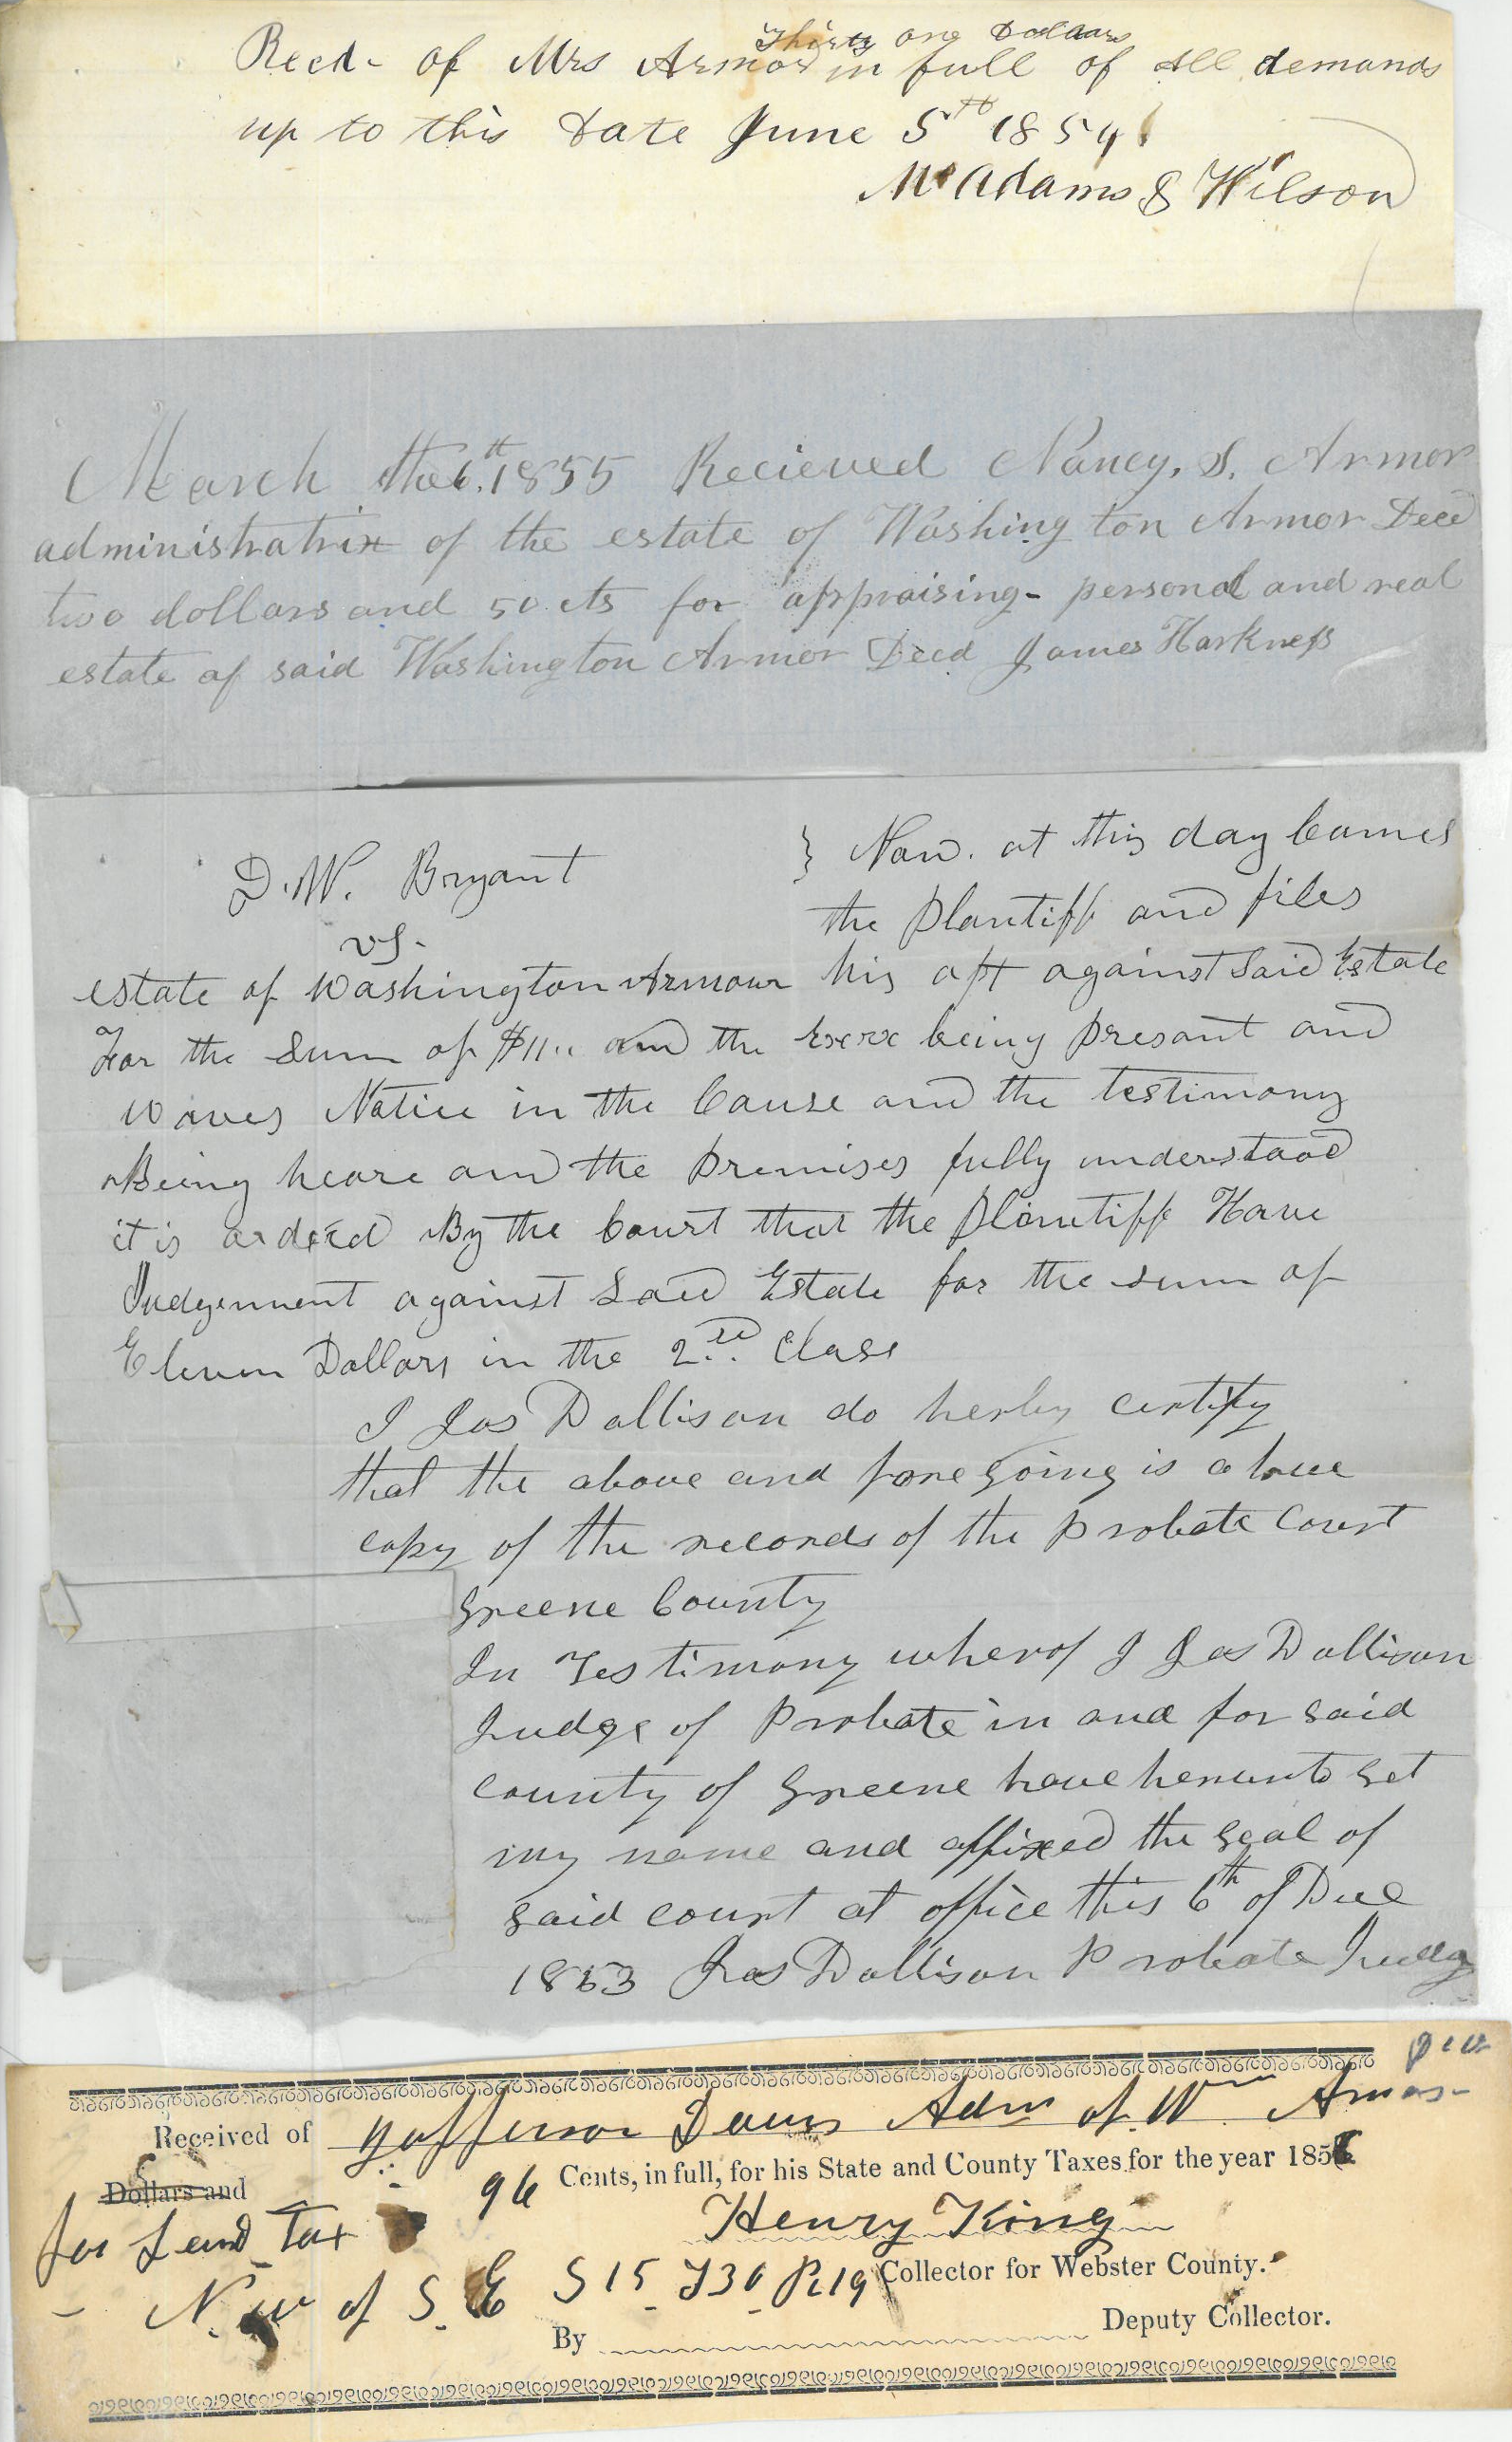 Thirty one Dollars
Recd- of Mrs Armor in full of all demands
up to this Date June 5th 1854
McAdams & Wilson
March the 6.th 1855 Recieved Nancy. S. Armor
administratrix of the estate of Washington Armor Decd
two dollars and 50 cts for appraising- personal and real
estate of said Washington Armor Decd James Harkness
D. W. Bryant
vs.
estate of Washington Armour
} Now. at this day Comes
the Plantiff and files
his apt against Said Estate
For the Sum of $11.. and the Exerx being Presant and
waves Notice in the Cause and the testimony
Being heare and the Premises fully understood
it is ordered By the Court that the Plantiff Have
Judgenment against Said Estate for the sum of
Eleven Dollars in the 2nd Class
I Jas Dollison do herby certify
that the above and foregoing is a true
copy of the records of the Probate Court
Greene County
In Testimony wherof I Jas Dollison
Judge of Probate in and for said
county of Greene have herunto set
my name and affixed the seal of
said court at office this 6th of Dec
1853 Jas Dollison Probate Judg
Received of Jefferson Davis Adm of Wm Armor
Dollars and 96 Cents, in full, for his State and County Taxes for the year 185
for Land Tax
Henry King
N. W of S. E S 15 T30 R19 Collector for Webster County.
By Deputy Collector.